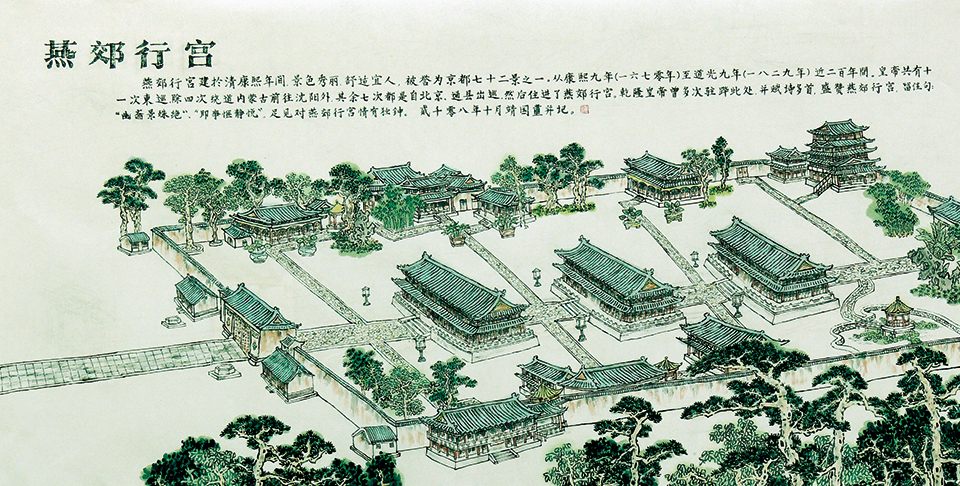 燕郊行宫
燕郊行宫建於清康熙年间,景色秀丽,舒适宜人,被誉为京都七十二景之一。从康熙九年(一六七零年)至道光九年(一八二九年)近二百年間。皇帝共有十
一次東巡,除四次绕道内蒙古前往沈阳外,其余七次都是自北京、通县出巡,然后住进了燕郊行宫。乾隆皇帝曾多次驻跸此处,并赋诗多首,盛赞燕郊行宫,留佳句:
“幽斋景殊绝”、“即事惬静便”,足见对燕郊行宫情有独钟。贰千零八年十月靖国畫并记。